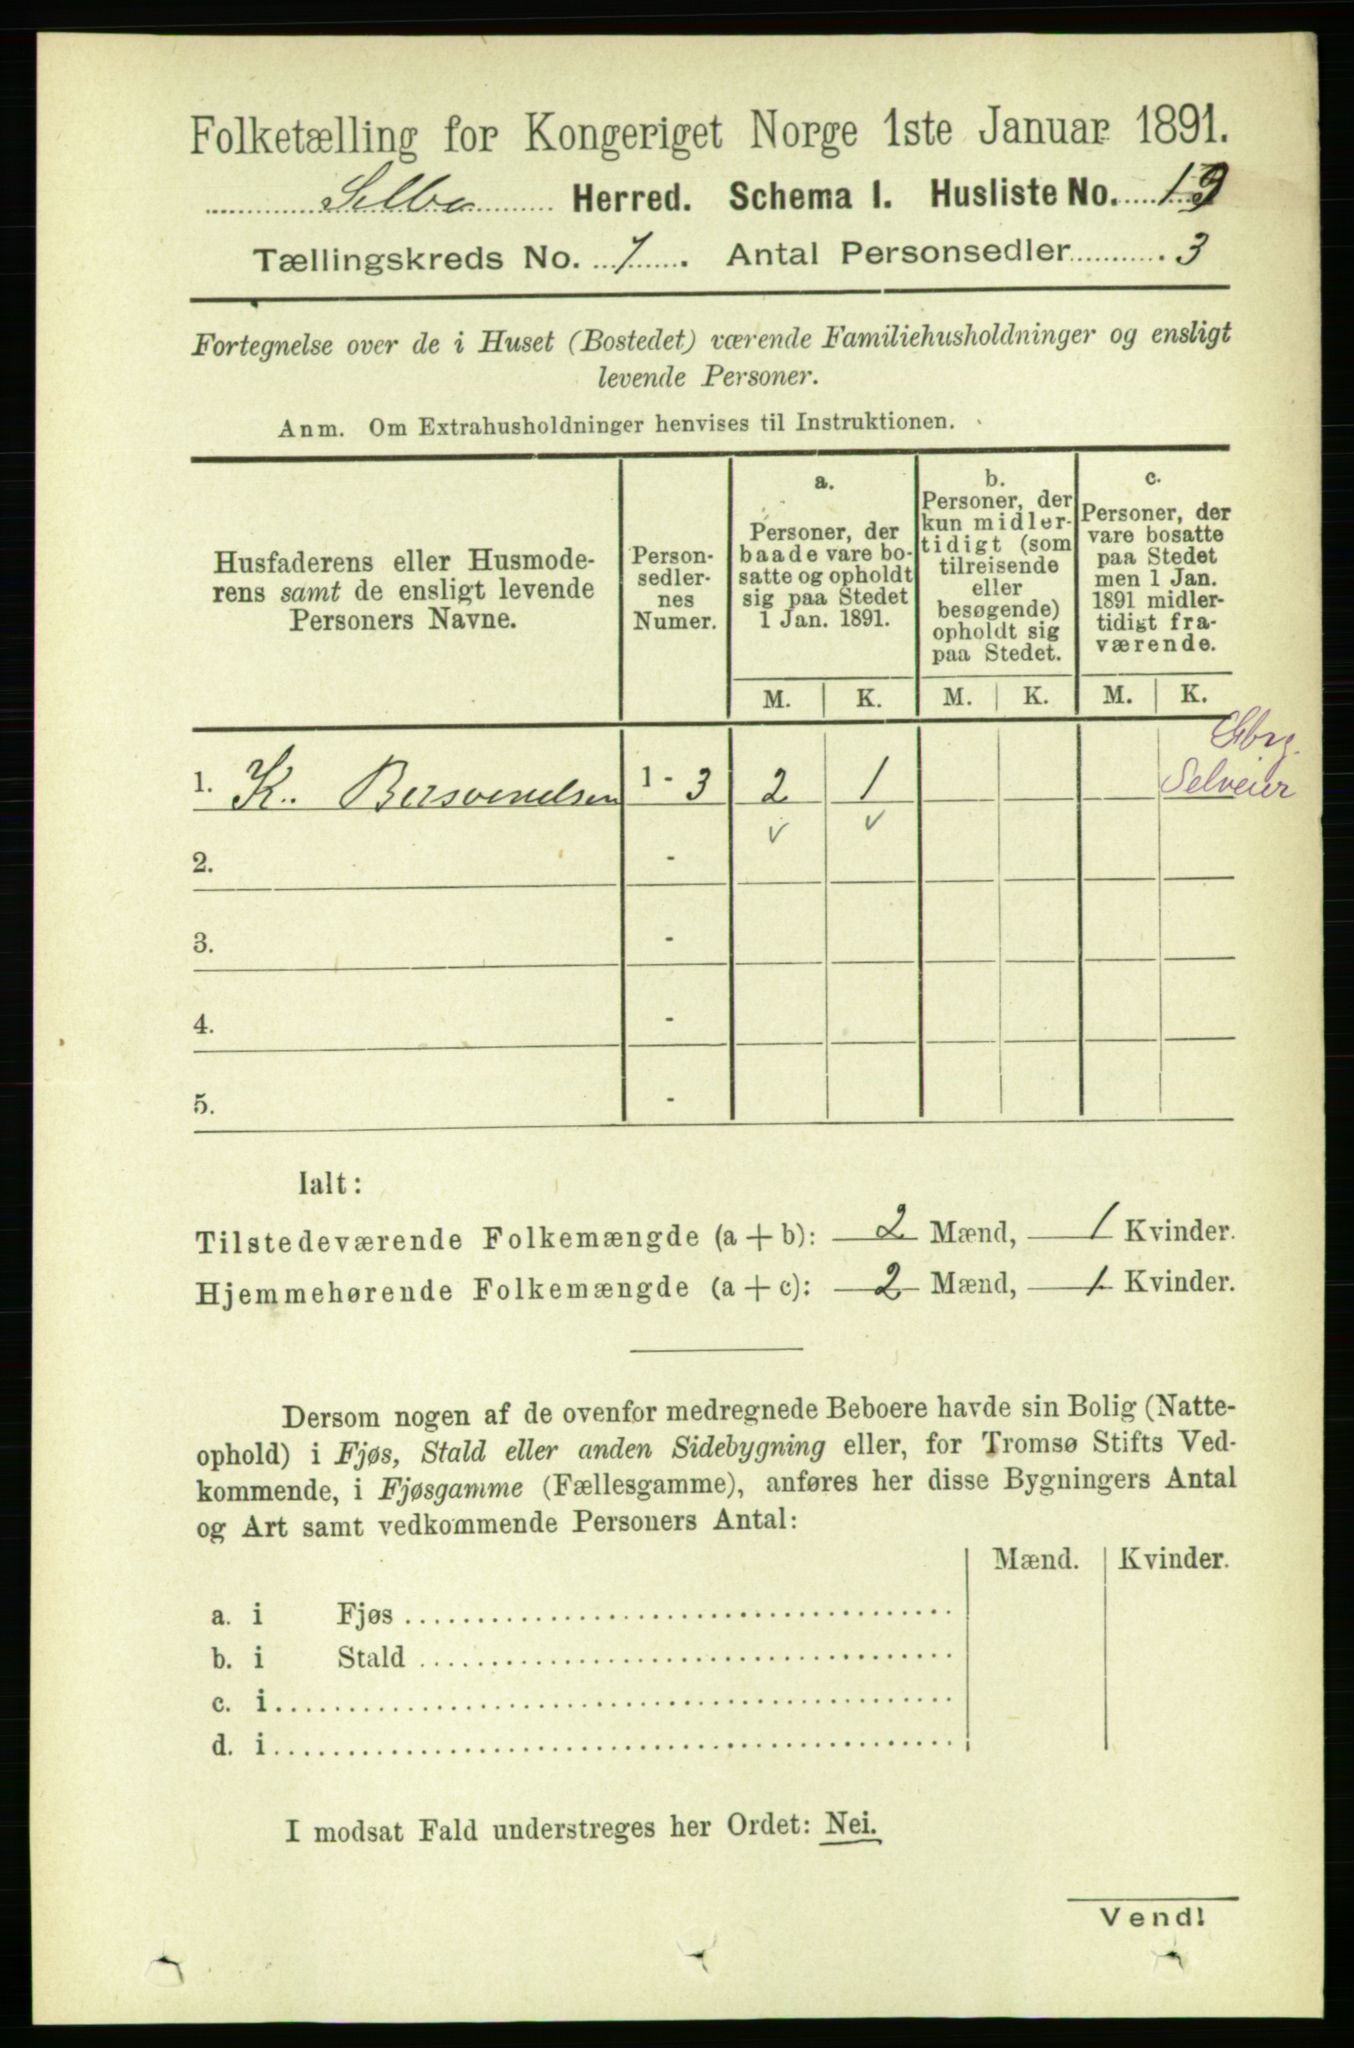 Folketælling for Kongeriget Norge 1ste Januar 1891.
Selbo Herred. Schema I. Husliste No. 19
Tællingskreds No. 7. Antal Personsedler 3
Fortegnelse over de i Huset (Bostedet) værende Familiehusholdninger og ensligt
levende Personer.
Anm. Om Extrahusholdninger henvises til Instruktionen.
Husfaderens eller Husmode-
rens samt de ensligt levende
Personers Navne.
Person-
sedler-
nes
Numer.
a.
Personer, der
baade vare bo-
satte og opholdt
sig paa Stedet
1 Jan. 1891.
b.
Personer, der
kun midler-
tidigt (som
tilreisende
eller
besøgende)
opholdt sig
paa Stedet.
c.
Personer, der
vare bosatte
paa Stedet
men 1 Jan.
1891 midler-
tidigt fra-
værende.
M. K. M. K. M. K.
Gbrg.
Selveier
1. K. Bersvendsen 1 - 3 2 1
2. -
3. -
4. -
5. -
Ialt:
Tilstedeværende Folkemængde (a + b): 2 Mænd, 1 Kvinder.
Hjemmehørende Folkemængde (a + c): 2 Mænd, 1 Kvinder.
Dersom nogen af de ovenfor medregnede Beboere havde sin Bolig (Natte-
ophold) i Fjøs, Stald eller anden Sidebygning eller, for Tromsø Stifts Ved-
kommende, i Fjøsgamme (Fællesgamme), anføres her disse Bygningers Antal
og Art samt vedkommende Personers Antal:
Mænd. Kvinder.
a. i Fjøs
b. i Stald
c. i
d. i
I modsat Fald understreges her Ordet: Nei.
Vend!